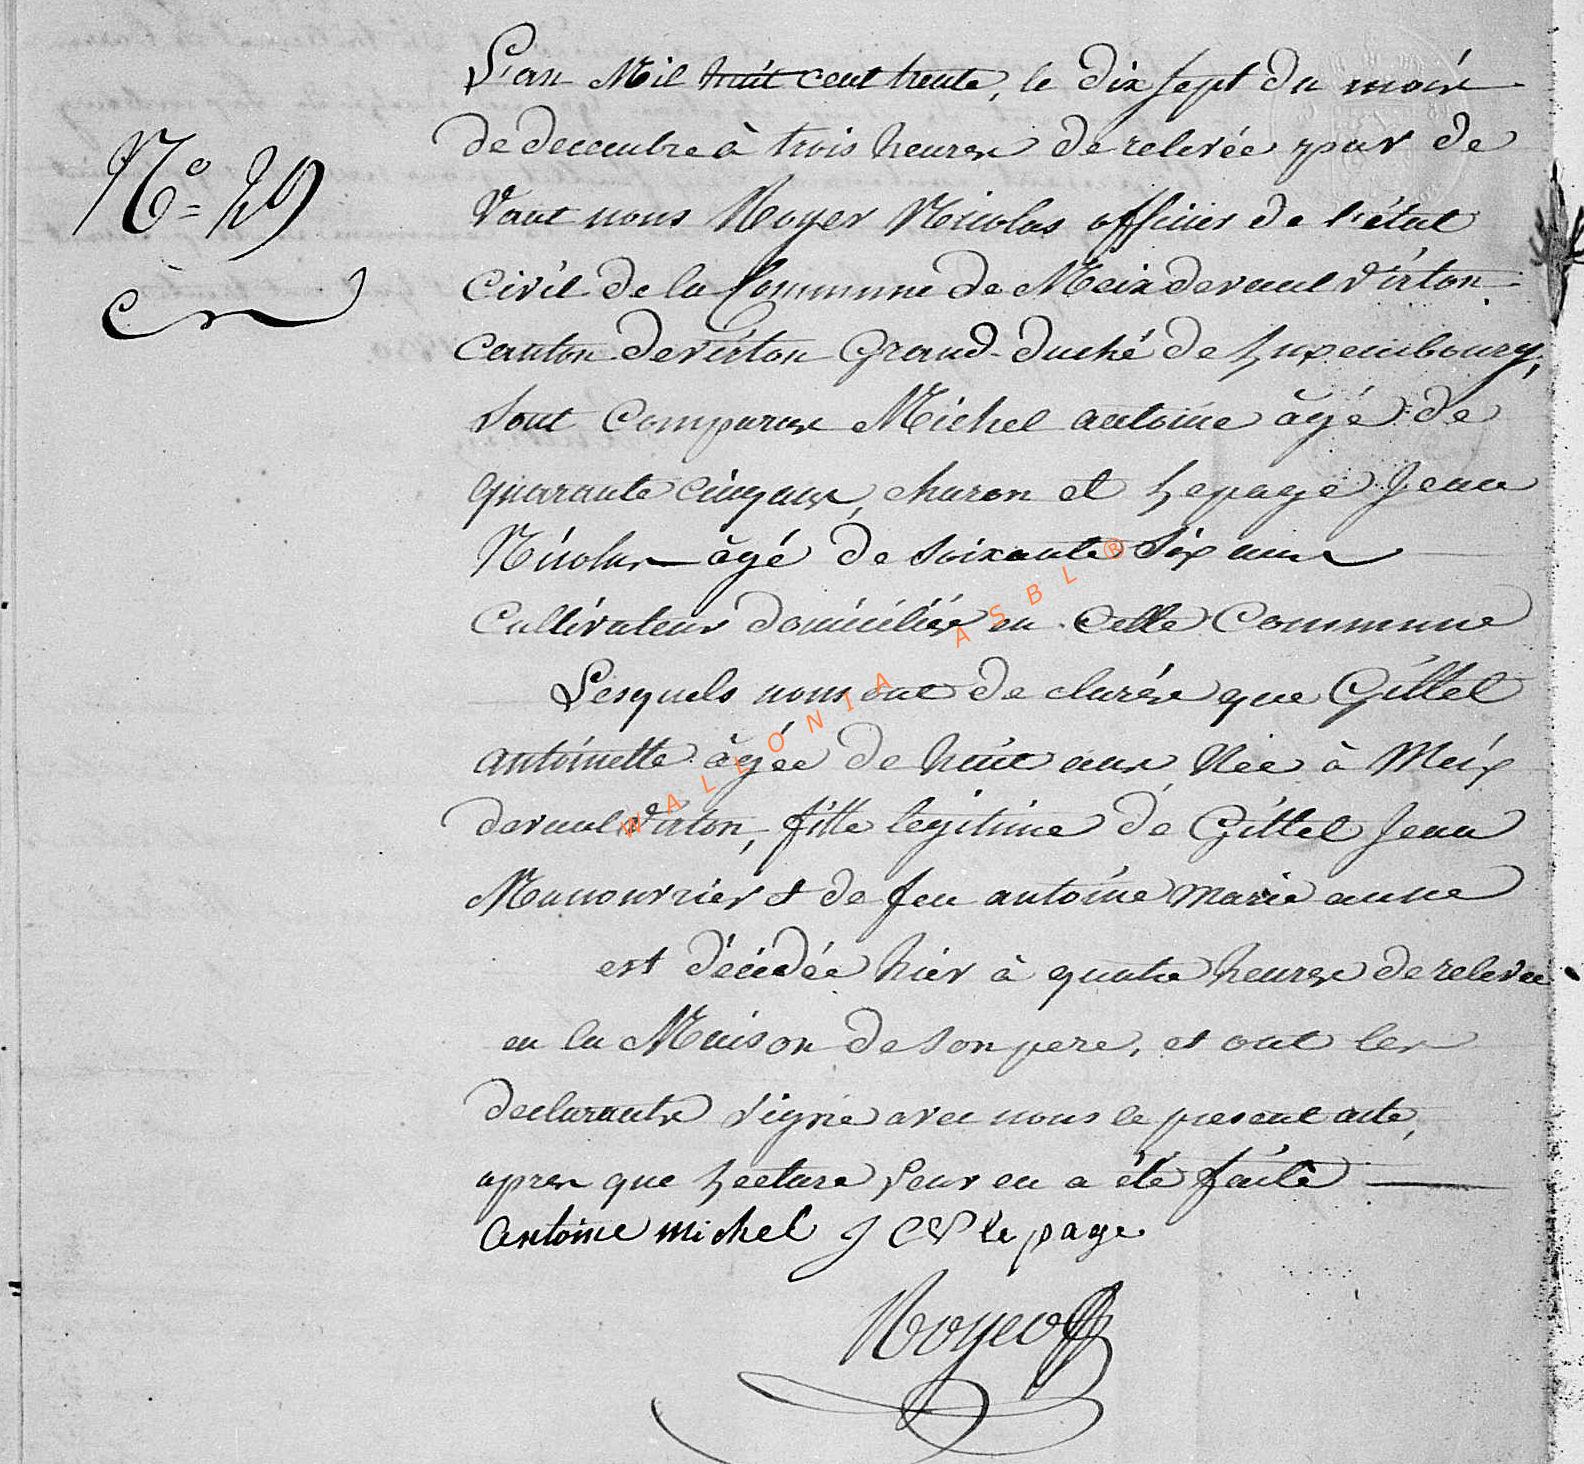 L'an Mil huit cent trente, le dix sept du mois
de decembre à trois heures de relevée par de
Vant nous Noyer Nicolas officier de l'état
Civil de la Commune de Meix devant Virton
Canton de virton Grand-duché de Luxembourg,
sont comparus Michel antoine âgé de
quarante cinq ans, charon et Lepage Jean
Nicolas âgé de soixante six ans
Cultivateur domiciliés en cette Commune
Lesquels nous ont de clarés que Gillet
antoinette âgée de huit ans Née à Meix
devant Virton, fille legitime de Gillet Jean
Manouvrier & de feu antoine marie anne
est décédée hier à quatre heures de relevée
en la Maison de son pere, et ont les
declarants signé avec nous le present acte,
apres que Lecture Leur en a été faite
Antoine michel J N le page
Noyer off
N° 29
WALLONIA ASBL ®